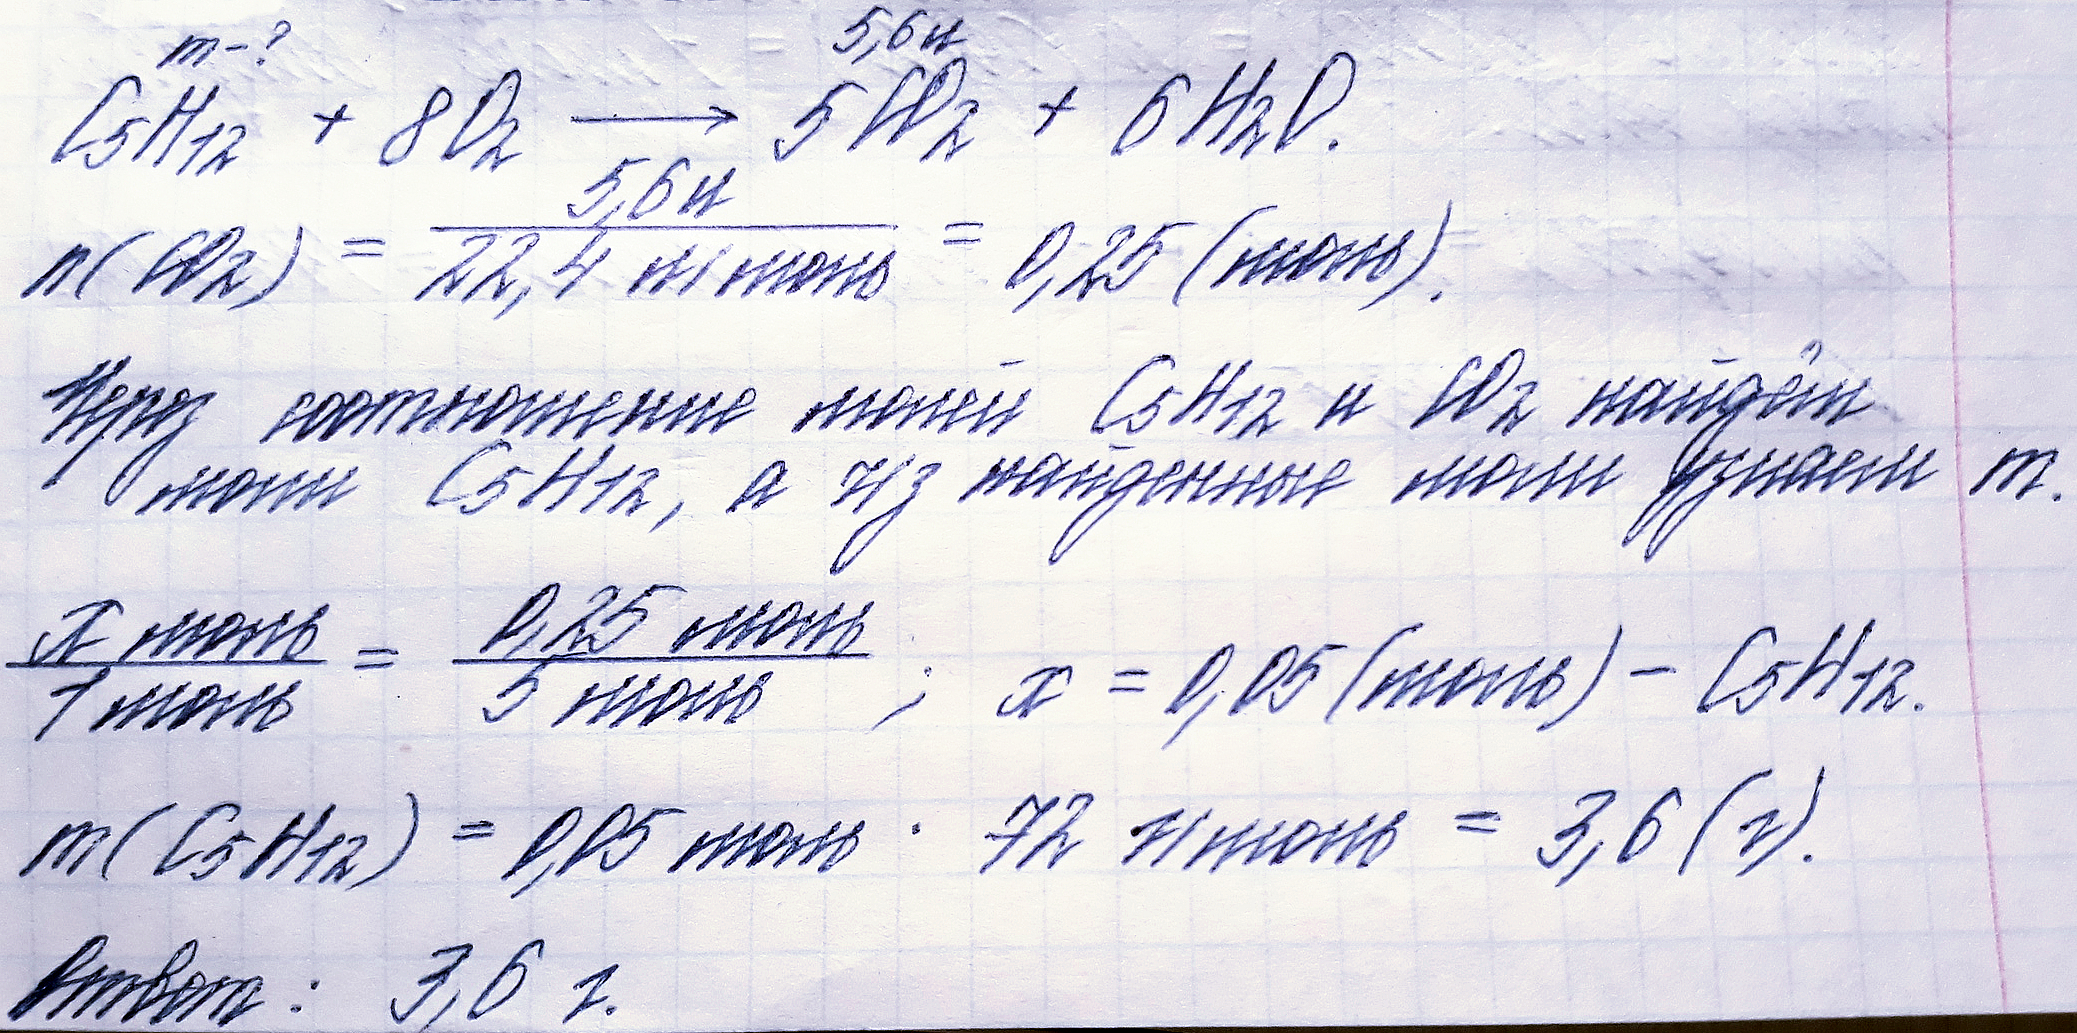 m-?
5,6 л
C5H12 + 8O2 → 5CO2 + 6H2O.
n(CO2) = 5,6 л / 22,4 л/моль = 0,25 (моль).
Через соотношение молей C5H12 и CO2 найдём
моли C5H12, а из найденные моли узнаем m.
x моль / 1 моль = 0,25 моль / 5 моль ; x = 0,05 (моль) - C5H12.
m(C5H12) = 0,05 моль · 72 г/моль = 3,6 (г).
Ответ: 3,6 г.